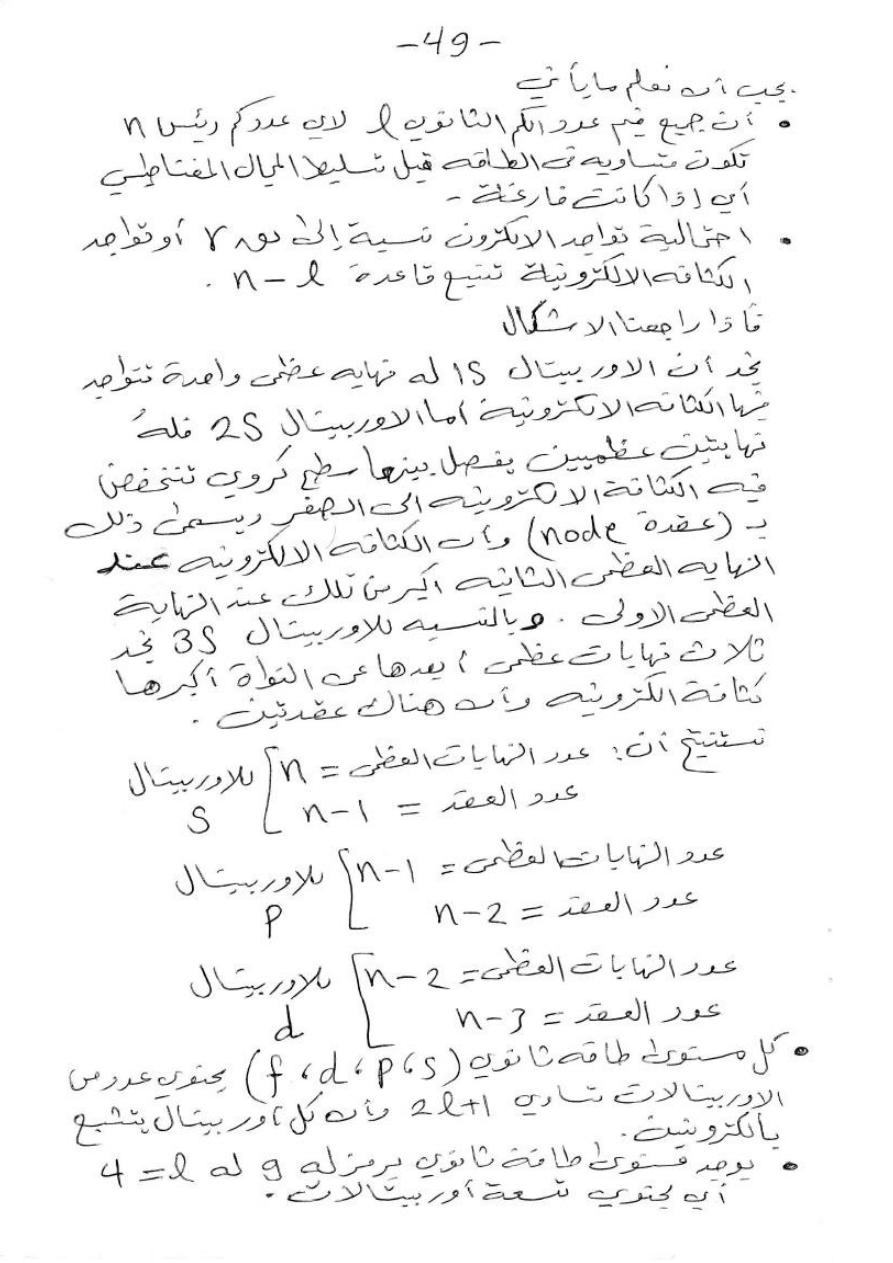 -49-
يجب أن نعلم مايأتي
• أن جميع قيم عدد الكم الثانوي l لاي عدد كم رئيس n
تكون متساويه في الطاقه قبل تسليط المجال المغناطيسي
أي إذا كانت فارغة -
• احتمالية تواجد الالكترون نسبة إلى r أو تواجد
الكثافه الالكترونية تتبع قاعدة n-l .
فأذا راجعنا الاشكال
نجد أن الاوربيتال 1S له نهايه عظمى واحدة تتواجد
فيها الكثافه الالكترونية أما الاوربيتال 2S فلهُ
نهايتين عظميين يفصل بينهما سطح كروي تنخفض
فيه الكثافة الالكترونيه الى الصفر ويسمى ذلك
بـ (عقدة node) وأن الكثافه الالكترونيه عند
النهايه العظمى الثانيه اكبر من تلك عند النهاية
العظمى الاولى . وبالنسبه للاوربيتال 3S نجد
ثلاث نهايات عظمى أبعدها عن النواة أكبرها
كثافة الكترونيه وأن هناك عقدتين .
نستنتج أن: عدد النهايات العظمى = n [ للاوربيتال
عدد العقد = n-1 [ S
عدد النهايات العظمى = n-1 [ للاوربيتال
عدد العقد = n-2 [ P
عدد النهايات العظمى = n-2 [ للاوربيتال
عدد العقد = n-3 [ d
• كل مستوى طاقه ثانوي (s، p، d، f) يحتوي عدد من
الاوربيتالات تساوي 2l+1 وأن كل أوربيتال يتشبع
بالكترونين.
• يوجد مستوى طاقة ثانوي يرمز له g له l = 4
أي يحتوي تسعة أوربيتالات .